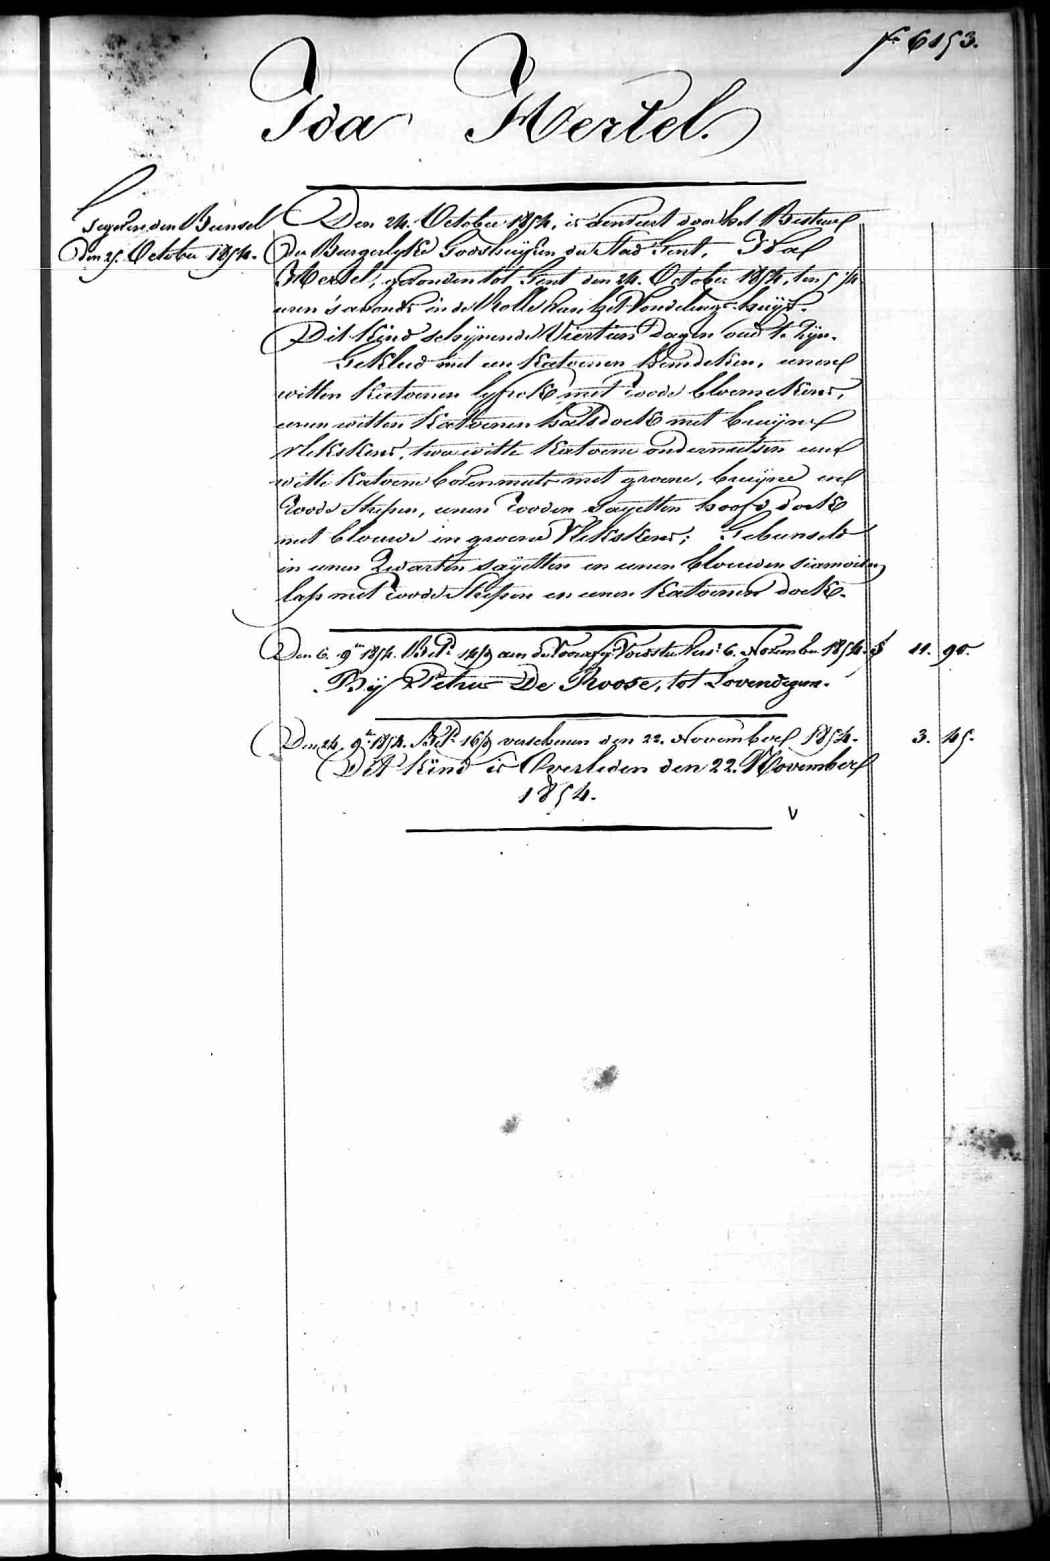 f° 6153.
Ida Hertel.
Den 24. October 1854, is door het Bestuur
den 25. October 1854.
der Burgerlyke Godshuyzen der Stad Gent, Ida
Hertel, gevonden tot Gent den 24. October 1854, ten 5 1/4
uren 's avonds in de Rolle van het Vondelings-huys.
Dit Kind schynende Viertien Dagen oud te zyn.
Gekleed met een Katoenen hemdeken, eenen
witten Katoenen lyfrok met roode bloemekens,
eenen witten Katoenen halsdoek met bruyne
vlekskens, twee witte Katoene ondermutsen eene
witte Katoene bovenmuts met groene, bruyne en
roode strepen, eenen rooden sayetten hoofddoek
met blauwe en groene vlekskens; Gebunseld
in eenen zwarten sayetten en eenen blauwen siamoisen
lap met roode strepen en eenen Katoenen doek.
Den 6. 9ber 1854. Bet. 14/9 aan de 6. November 1854. 11. 90.
By Petrus De Roose, tot Lovendegem.
Den 24. 9ber 1854. Bet. 16/9 verschenen den 22. November 1854. 3. 45.
Dit kind is Overleden den 22. November
1854.